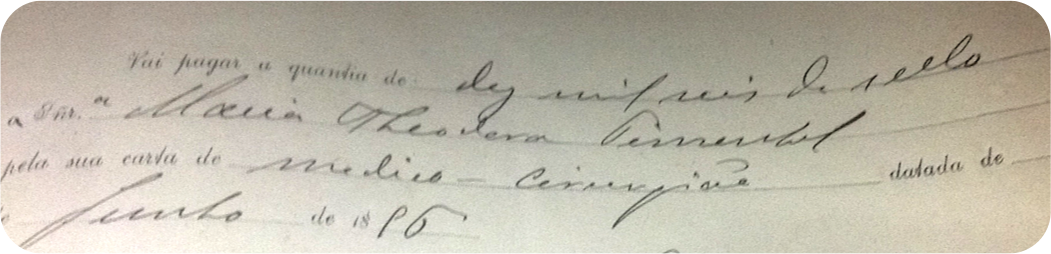 Vai pagar a quantia de dez mil reis de sello
a Snr.ª Maria Theodora Pimentel
pela sua carta de medico-cirurgião datada de
Junho de 1896